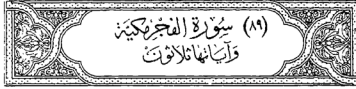 (٨٩) سُورَة الفَجْرِ مَكِيَّة
وَآيَاتُهَا ثَلَاثُونَ